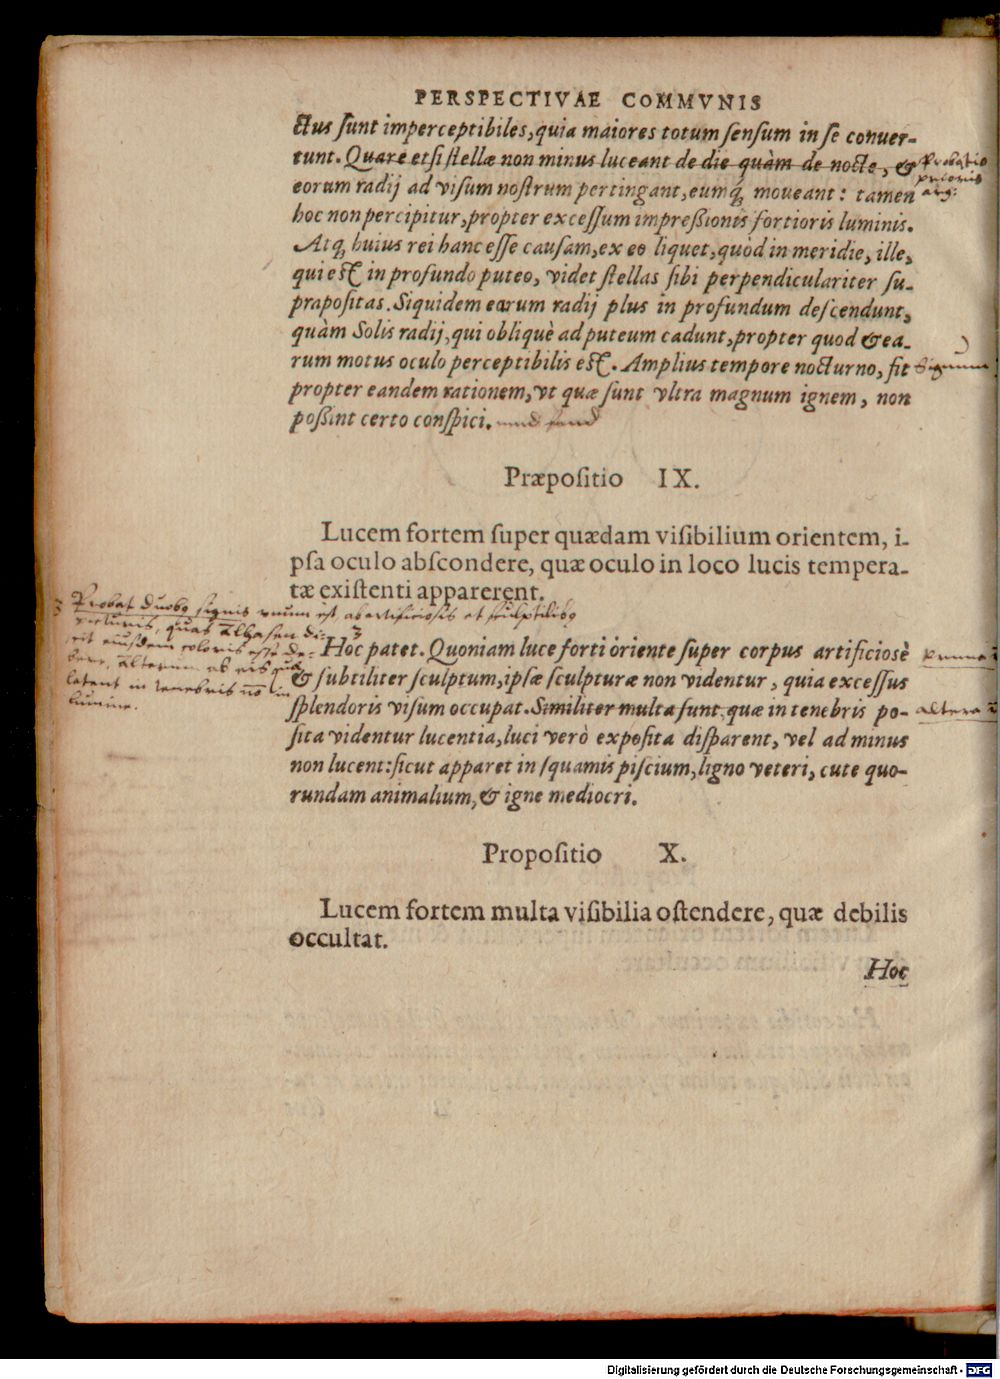 PERSPECTIVAE COMMVNIS
ctus sunt imperceptibiles, quia maiores totum sensum in se conuer-
tunt. Quare etsi stellæ non minus luceant de die quàm de nocte, & Probatio
prioris
eorum radij ad visum nostrum pertingant, eumq; moueant: tamen arg:
hoc non percipitur, propter excessum impreßionis fortioris luminis.
Atq; huius rei hanc esse causam, ex eo liquet, quòd in meridie, ille,
qui est in profundo puteo, videt stellas sibi perpendiculariter su-
prapositas. Siquidem earum radij plus in profundum descendunt,
quàm Solis radij, qui obliquè ad puteum cadunt, propter quod & ea-
rum motus oculo perceptibilis est. Amplius tempore nocturno, fit Signum
propter eandem rationem, vt quæ sunt vltra magnum ignem, non
poßint certo conspici.
Præpositio IX.
Lucem fortem super quædam visibilium orientem, i-
psa oculo abscondere, quæ oculo in loco lucis tempera-
tæ existenti apparerent.
3 Probat duobq signis vnum est ab artificiosis et sculptilibq
picturis, quas Alhasen di-
cit eiusdem coloris esse de-
bere, alterum ab eis quæ
latent in tenebris nō in
lumine.
3
Hoc patet. Quoniam luce forti oriente super corpus artificiosè
& subtiliter sculptum, ipsæ sculpturæ non videntur, quia excessus
splendoris visum occupat. Similiter multa sunt quæ in tenebris po- altera
sita videntur lucentia, luci verò exposita disparent, vel ad minus
non lucent: sicut apparet in squamis piscium, ligno veteri, cute quo-
rundam animalium, & igne mediocri.
Propositio X.
Lucem fortem multa visibilia ostendere, quæ debilis
occultat.
Hoc
Digitalisierung gefördert durch die Deutsche Forschungsgemeinschaft - DFG